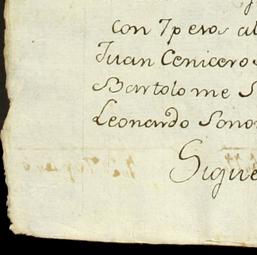 con 7 pesos al
Juan Cenicero
Bartolome S
Leonardo Sono
Sigue